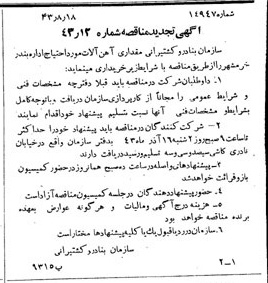 شماره ۱۴۹۴۷ ۴۳/۸/۱۸
آگهی تجدید مناقصه شماره ۴۳ر۱۲
سازمان بنادر و کشتیرانی مقداری آهن آلات مورد احتیاج اداره بندر
خرمشهر را از طریق مناقصه با شرایط زیر خریداری مینماید:
۱ ـ داوطلبان شرکت در مناقصه باید قبلا دفترچه مشخصات فنی
و شرایط عمومی را مجاناً از کارپردازی سازمان دریافت و با توجه کامل
بشرایط و مشخصات فنی آنها نسبت تسلیم پیشنهاد خود اقدام نمایند
۲ ـ شرکت کنندگان در مناقصه باید پیشنهاد خود را حداکثر
تا ساعت ۹ صبح روز ۲ شنبه ۱۶ آذر ماه ۴۳ بدفتر سازمان واقع در خیابان
نادری کاشی سیصد و سی و سه تسلیم و رسید دریافت دارند
۳ ـ پیشنهادهای واصله در ساعت ده صبح همانروز در حضور کمیسیون
باز و قرائت خواهد شد
۴ ـ حضور پیشنهاد دهندگان در جلسه کمیسیون مناقصه آزاد است
۵ ـ هزینه درج آگهی و مالیات و هر گونه عوارض بعهده
برنده مناقصه خواهد بود
۶ ـ سازمان در رد یا قبول یک یا کلیه پیشنهادها مختار است
سازمان بنادر و کشتیرانی
۲ـ۱ پ ۹۳۱۵